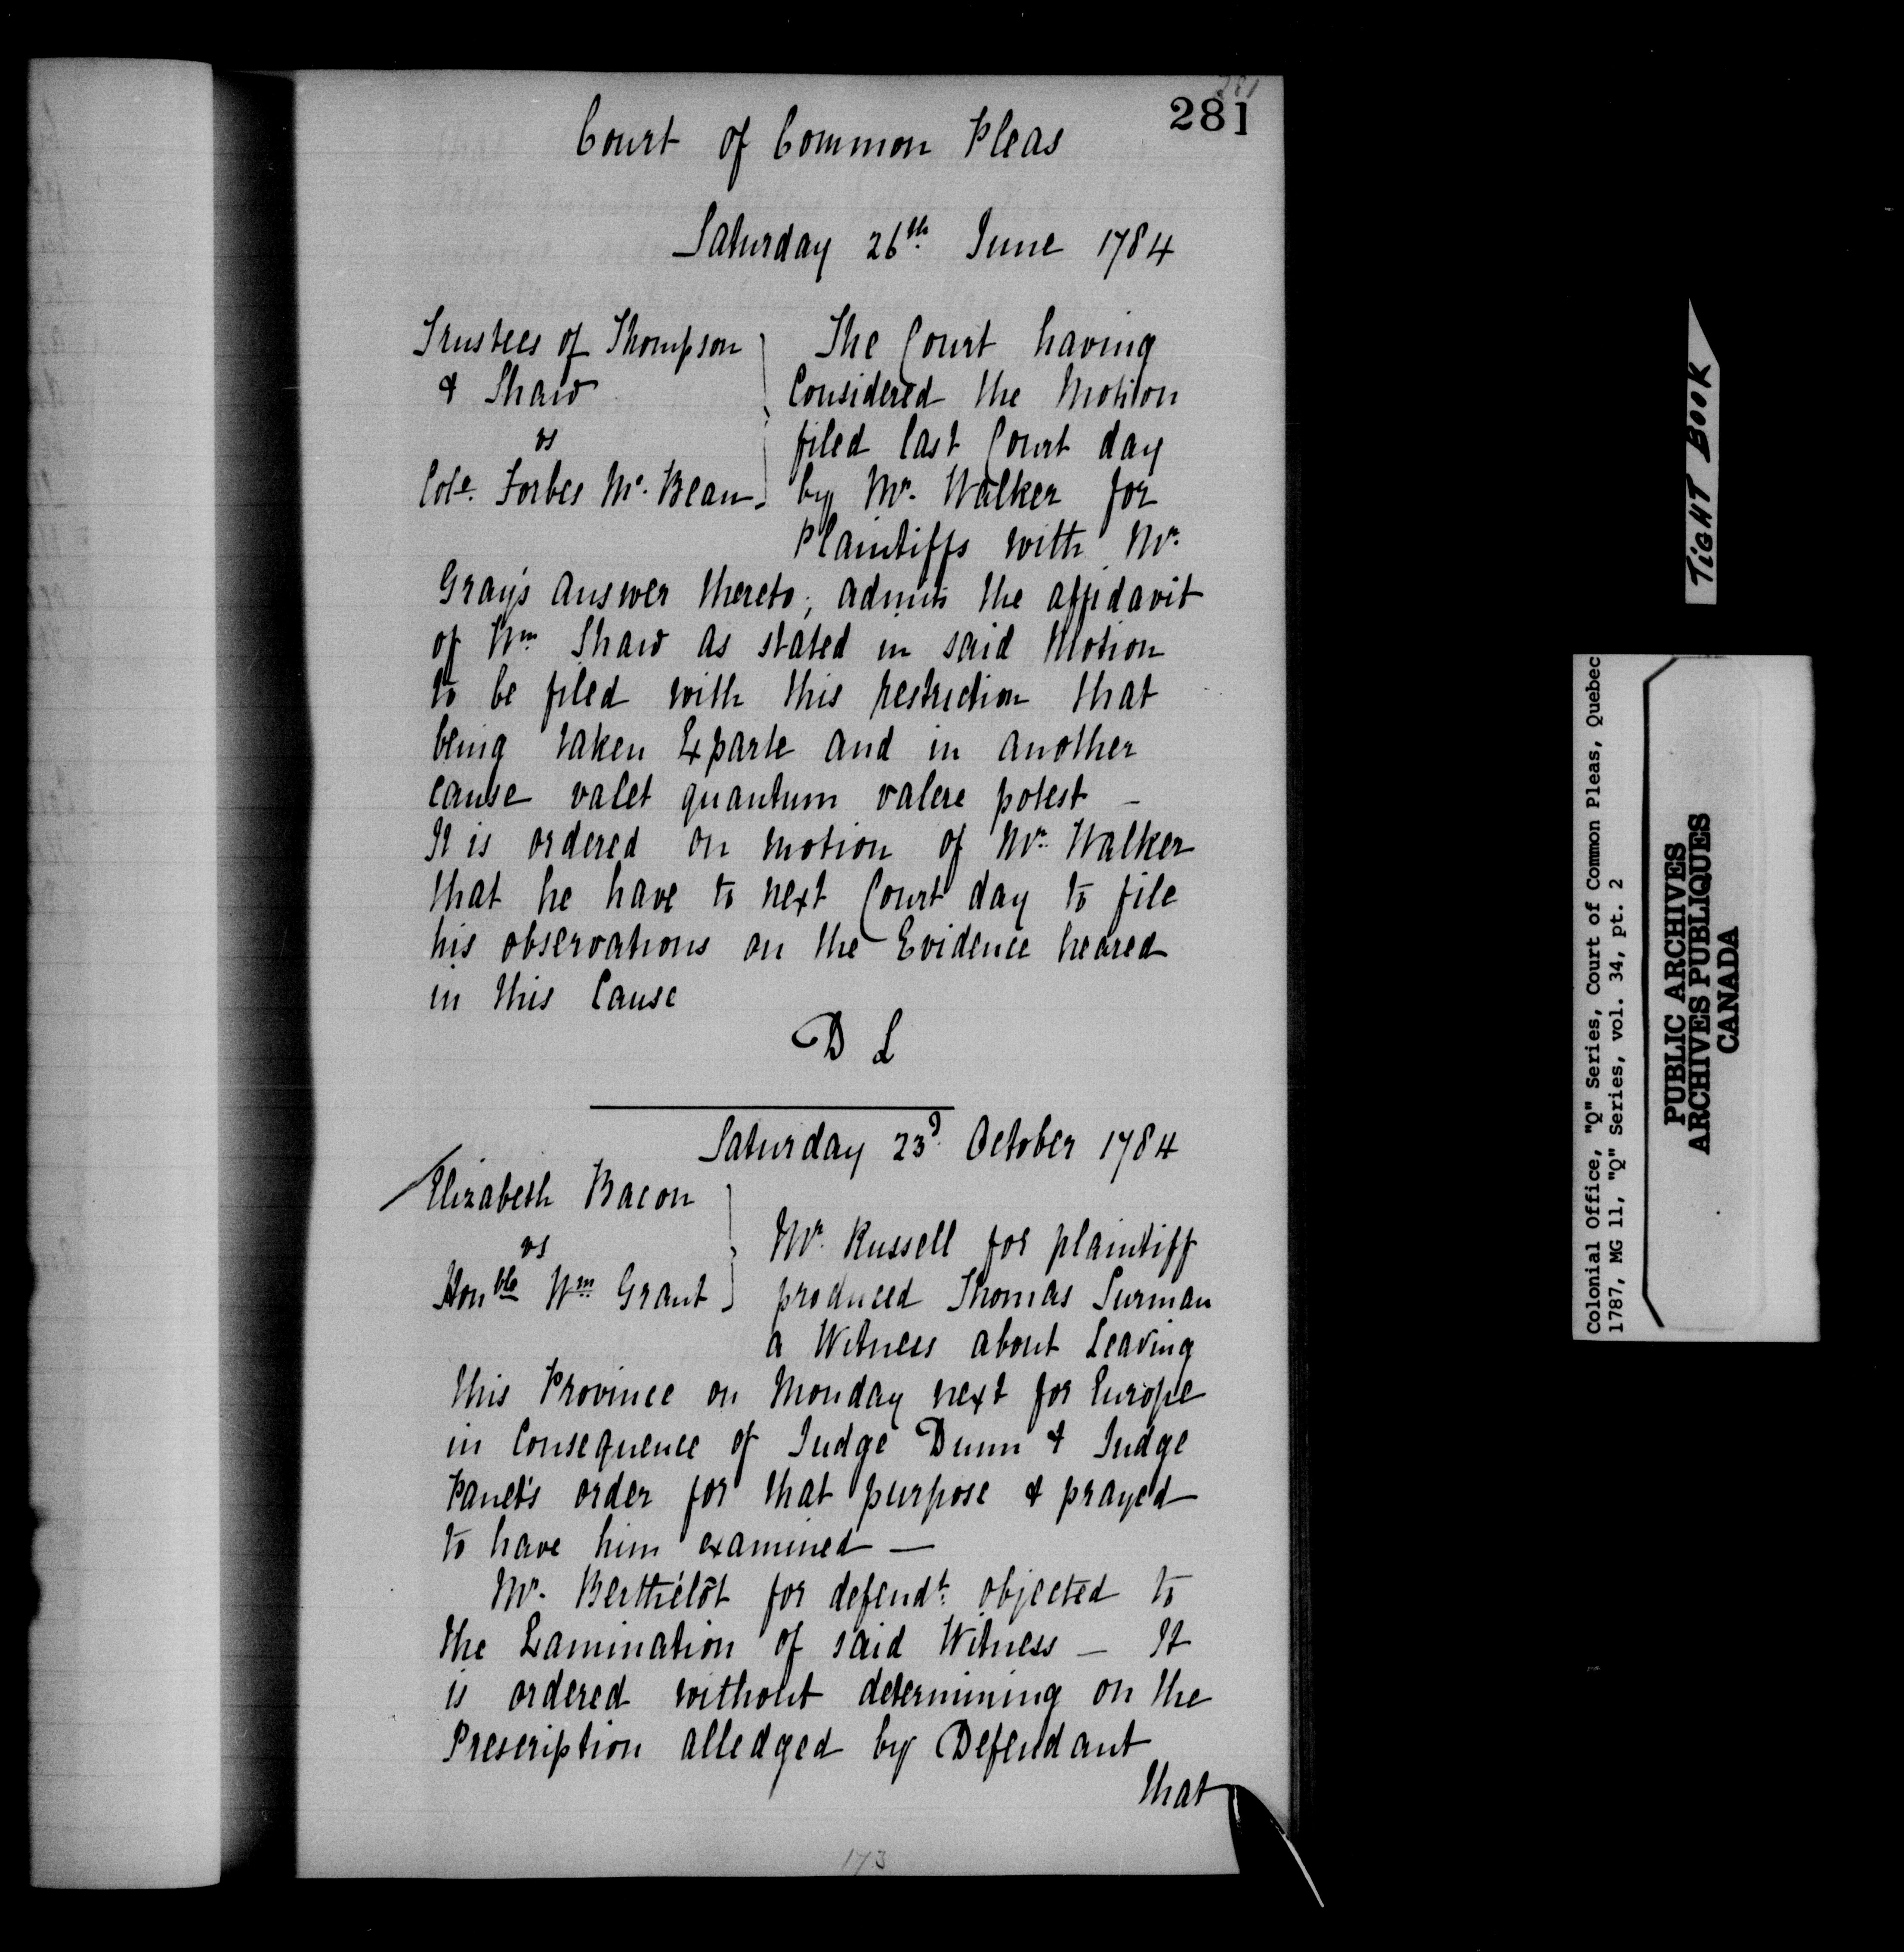 281
281
Court of Common Pleas
Saturday 26th June 1784
Trustees of Thompson
& Shaw
vs
Cole. Forbes Mc. Bean
The Court having
Considered the Motion
filed last Court day
by Mr. Walker for
Plaintiffs with Mr.
Gray's answer thereto; admits the affidavit
of Wm Shaw as stated in said Motion
to be filed with this restriction that
being taken Exparte and in another
cause valet quantum valere potest –
It is ordered on motion of Mr. Walker
that he have to next Court day to file
his observations on the Evidence heared
in this Cause
D L
Saturday 23d. October 1784
Elizabeth Bacon
vs
Honble Wm Grant
Mr. Russell for plaintiff
produced Thomas Surman
a Witness about Leaving
this Province on Monday next for Europe
in Consequence of Judge Dunn & Judge
Panet's order for that purpose & prayed
to have him examined —
Mr. Berthélot for defendt. objected to
the Examination of said Witness – It
is ordered without determining on the
Prescription alledged by Defendant
that
173
TIGHT BOOK
Colonial Office, "Q" Series, Court of Common Pleas, Quebec
1787, MG 11, "Q" Series, vol. 34, pt. 2
PUBLIC ARCHIVES
ARCHIVES PUBLIQUES
CANADA